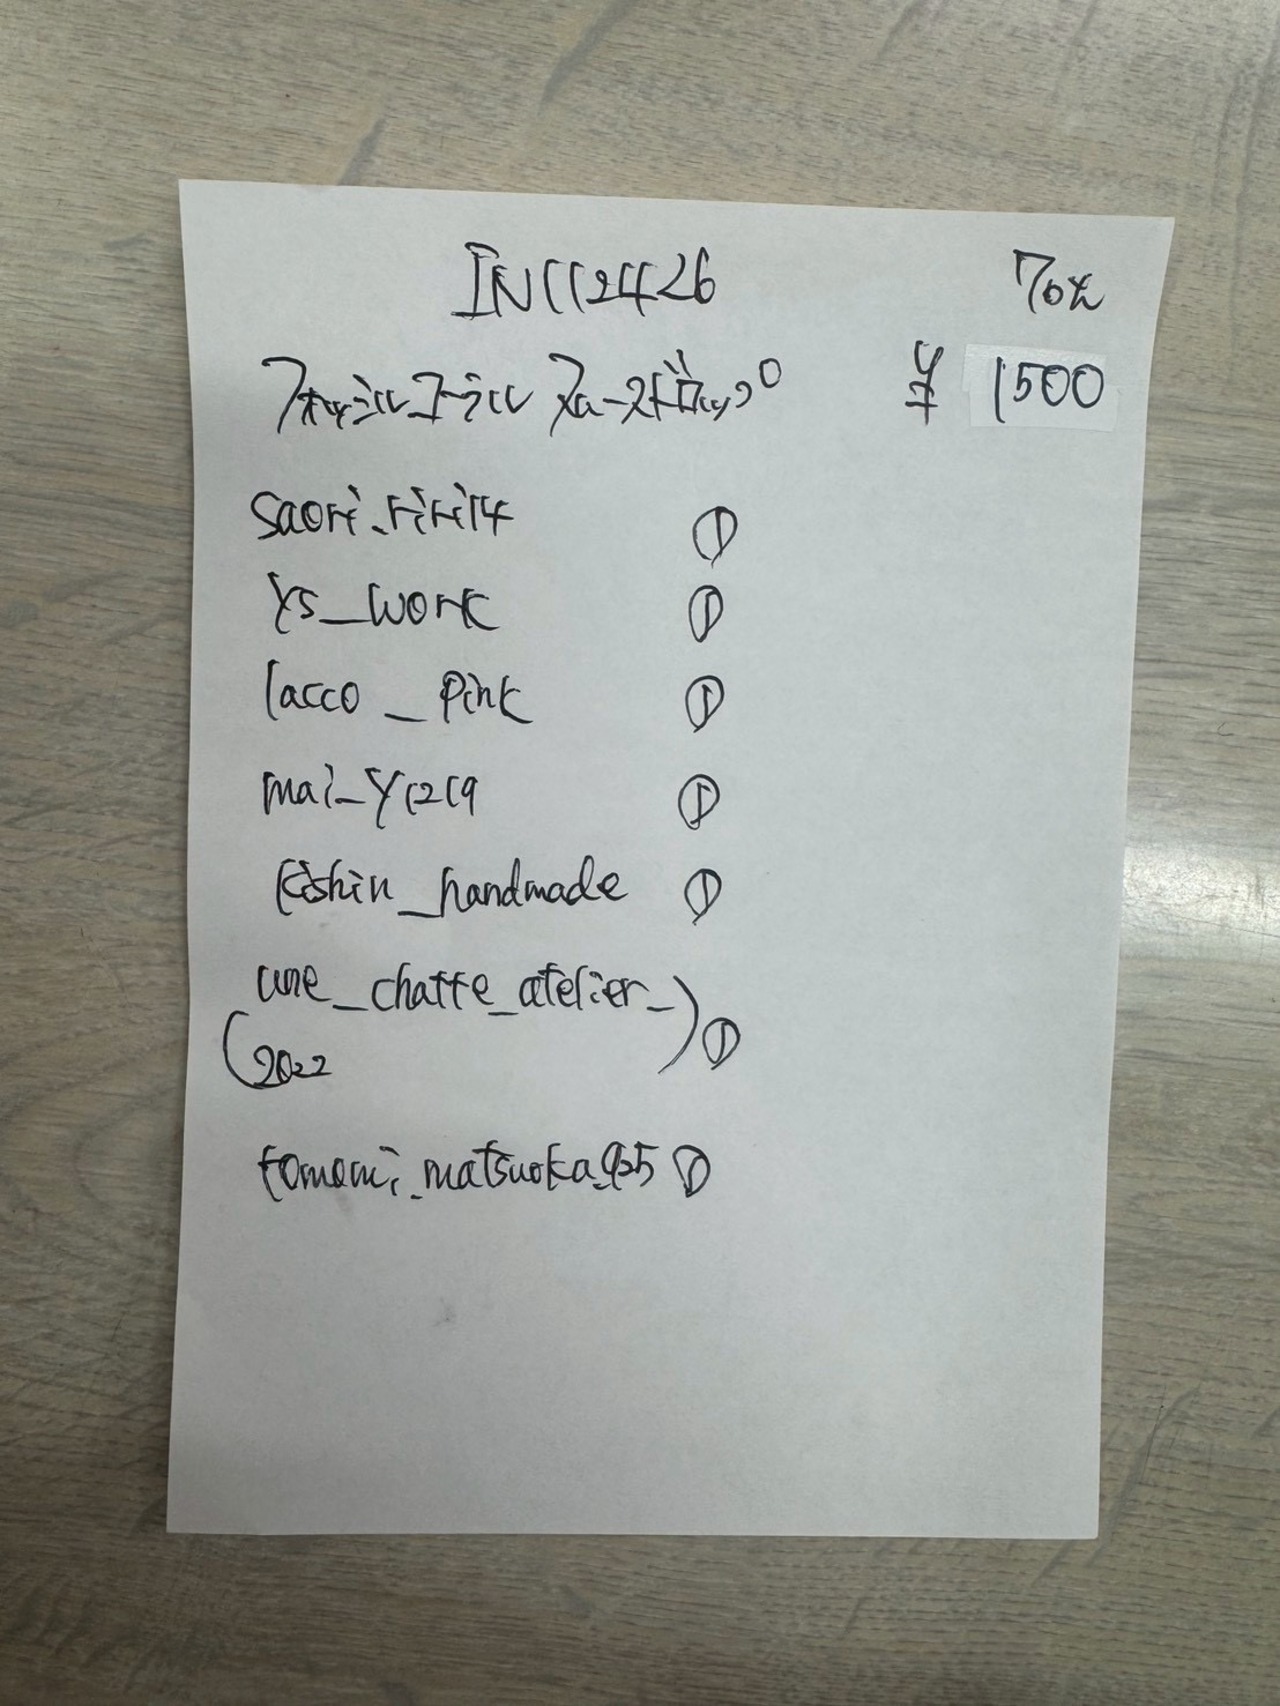 IN112426 70%
フォッシルコーラル フューズドロップ ¥ 1500
saori_riri14 ①
ys_work ①
lacco_pink ①
mai_y1219 ①
kishin_handmade ①
(une_chatte_atelier_
2022) ①
tomomi_matsuoka_925 ①